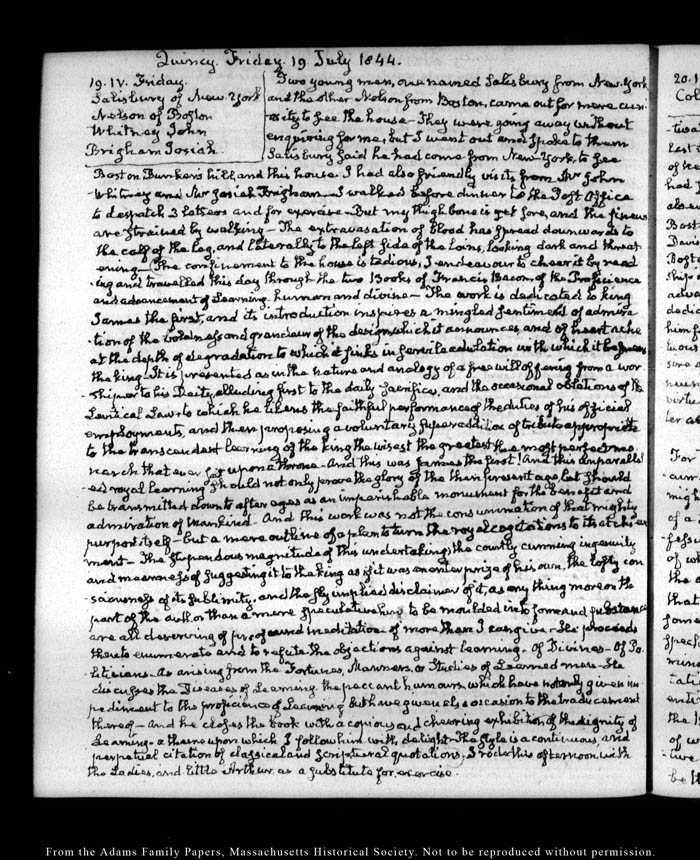 Quincy. Friday. 19 July 1844.
19. IV. Friday.
Salisbury of New-York
Nelson of Boston
Whitney John
Brigham Josiah
Two young men, one named Salisbury from New-York
and the other Nelson from Boston, came out for mere curi-
osity to see the house — They were going away without
enquiring for me, but I went out and spoke to them
Salisbury said he had come from New-York to see
Boston Bunker's hill, and this house. I had also friendly visits from Mr John
Whitney and Mr Josiah Brigham — I walked before dinner to the Post Office
to despatch 3 letters and for exercise — But my thigh bone is yet sore, and the sinews
are strained by walking — The extravasation of blood has spread downwards to
the calf of the leg, and laterally to the left side of the loins, looking dark and threat-
ening — The confinement to the house is tedious, I endeavour to cheer it by read-
ing and travelled this day through the two Books of Francis Bacon, of the Proficience
and advancement of Learning, human and divine — The work is dedicated to king
James the first, and its introduction inspires a mingled sentiment of admira-
tion of the boldness and grandeur of the design which it announces and of heart ache
at the depth of degradation to which it sinks in servile adulation with which it
the king. It is presented as in the nature and analogy of a free will offering from a wor-
shipper to his Deity, alluding first to the daily sacrifice, and the occasional oblations of the
Levitical Law, to which he likens the faithful performance of the duties of his official
employments, and then proposing a voluntary superaddition of tribute appropriate
to the transcendent learning of the king the wisest the greatest the most perfect mo-
narch that ever sat upon a throne — And this was James the first! And this unparallel-
ed royal learning should not only prove the glory of the then present age, but should
be transmitted down to after ages as an imperishable monument for the benefit and
admiration of mankind. And this work was not the consummation of that mighty
purpose itself — but a mere outline of a plan to turn the royal cogitations to its atchieve
ment — The stupendous magnitude of this undertaking, the courtly cunning ingenuity
and meanness of suggesting it to the king as if it was an enterprize of his own, the lofty con-
sciousness of its sublimity, and the sly implied disclaimer of it, as any thing more on the
part of the author than a mere speculative to be moulded into form and substance
are all deserving of profound meditation of more than I can give — He proceeds
then to enumerate and to refute the objections against learning — Of Divines — Of Po-
liticians — As arising from the Fortunes, Manners, or Studies of Learned men — He
discusses the Diseases of Learning, the peccant humours, which have not only given im-
pediment to the proficience of Learning but have given also occasion to the traducement
thereof — And he closes the book with a copious and cheering exhibition of the dignity of
Learning — a theme upon which I follow him with delight — The style is a continuous, and
perpetual citation of classical and Scriptural quotations. I rode this afternoon with
the Ladies, and little Arthur as a substitute for exercise.
20.
Col
From the Adams Family Papers, Massachusetts Historical Society. Not to be reproduced without permission.